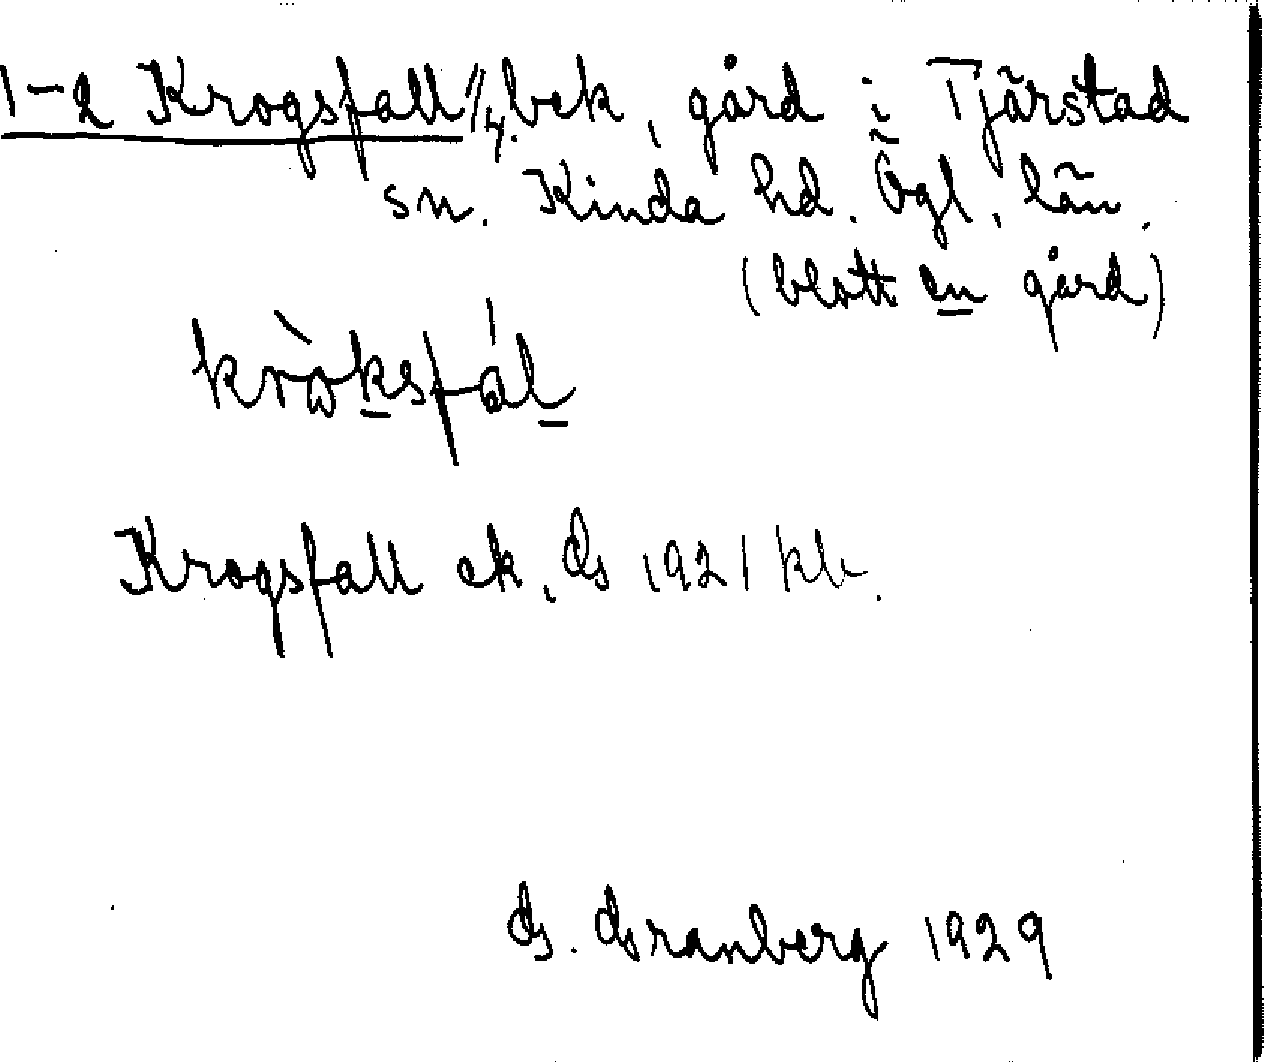 1-2 Krogsfall //4. bek, gård i Tjärstad
sn. Kinda hd. Ögl. län.
(blott en gård)
krὼksfál
Krogsfall ek, Gs 1921 kb.
G. Granberg 1929